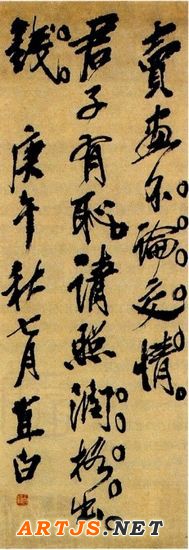 賣畫不論交情。
君子有恥請照潤格出
錢。庚午秋七月直白
ARTJS.NET